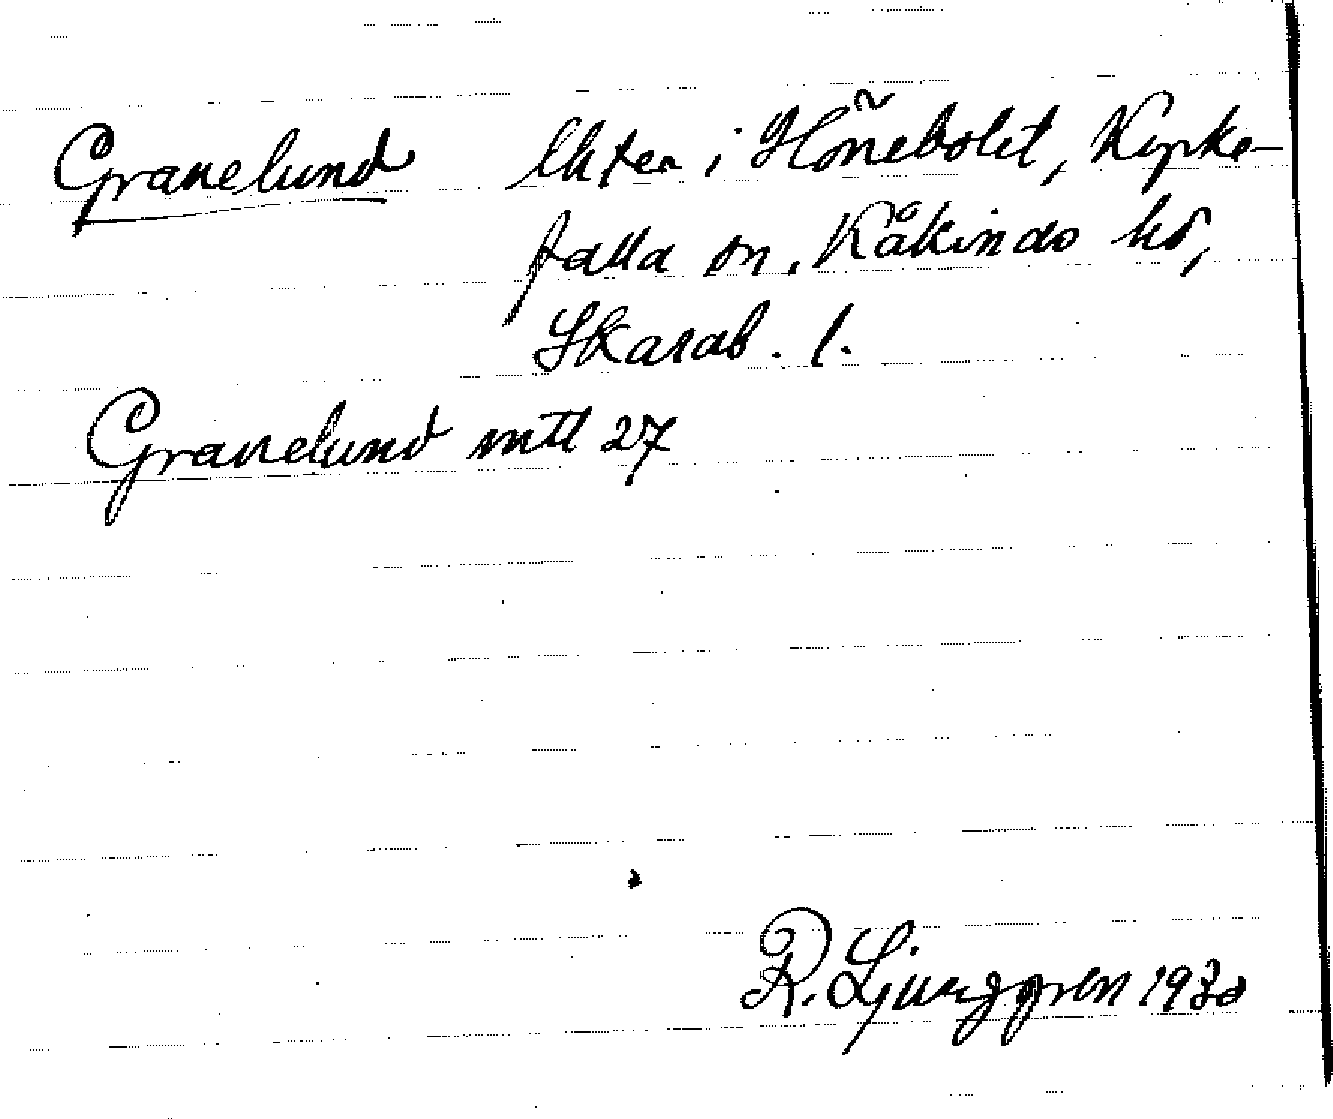 Granelund i Hönebolet, Kyrke-
falla sn, Kåkinds hd,
Skarab. l.
Granelund mtl 27
R. Ljunggren 1930